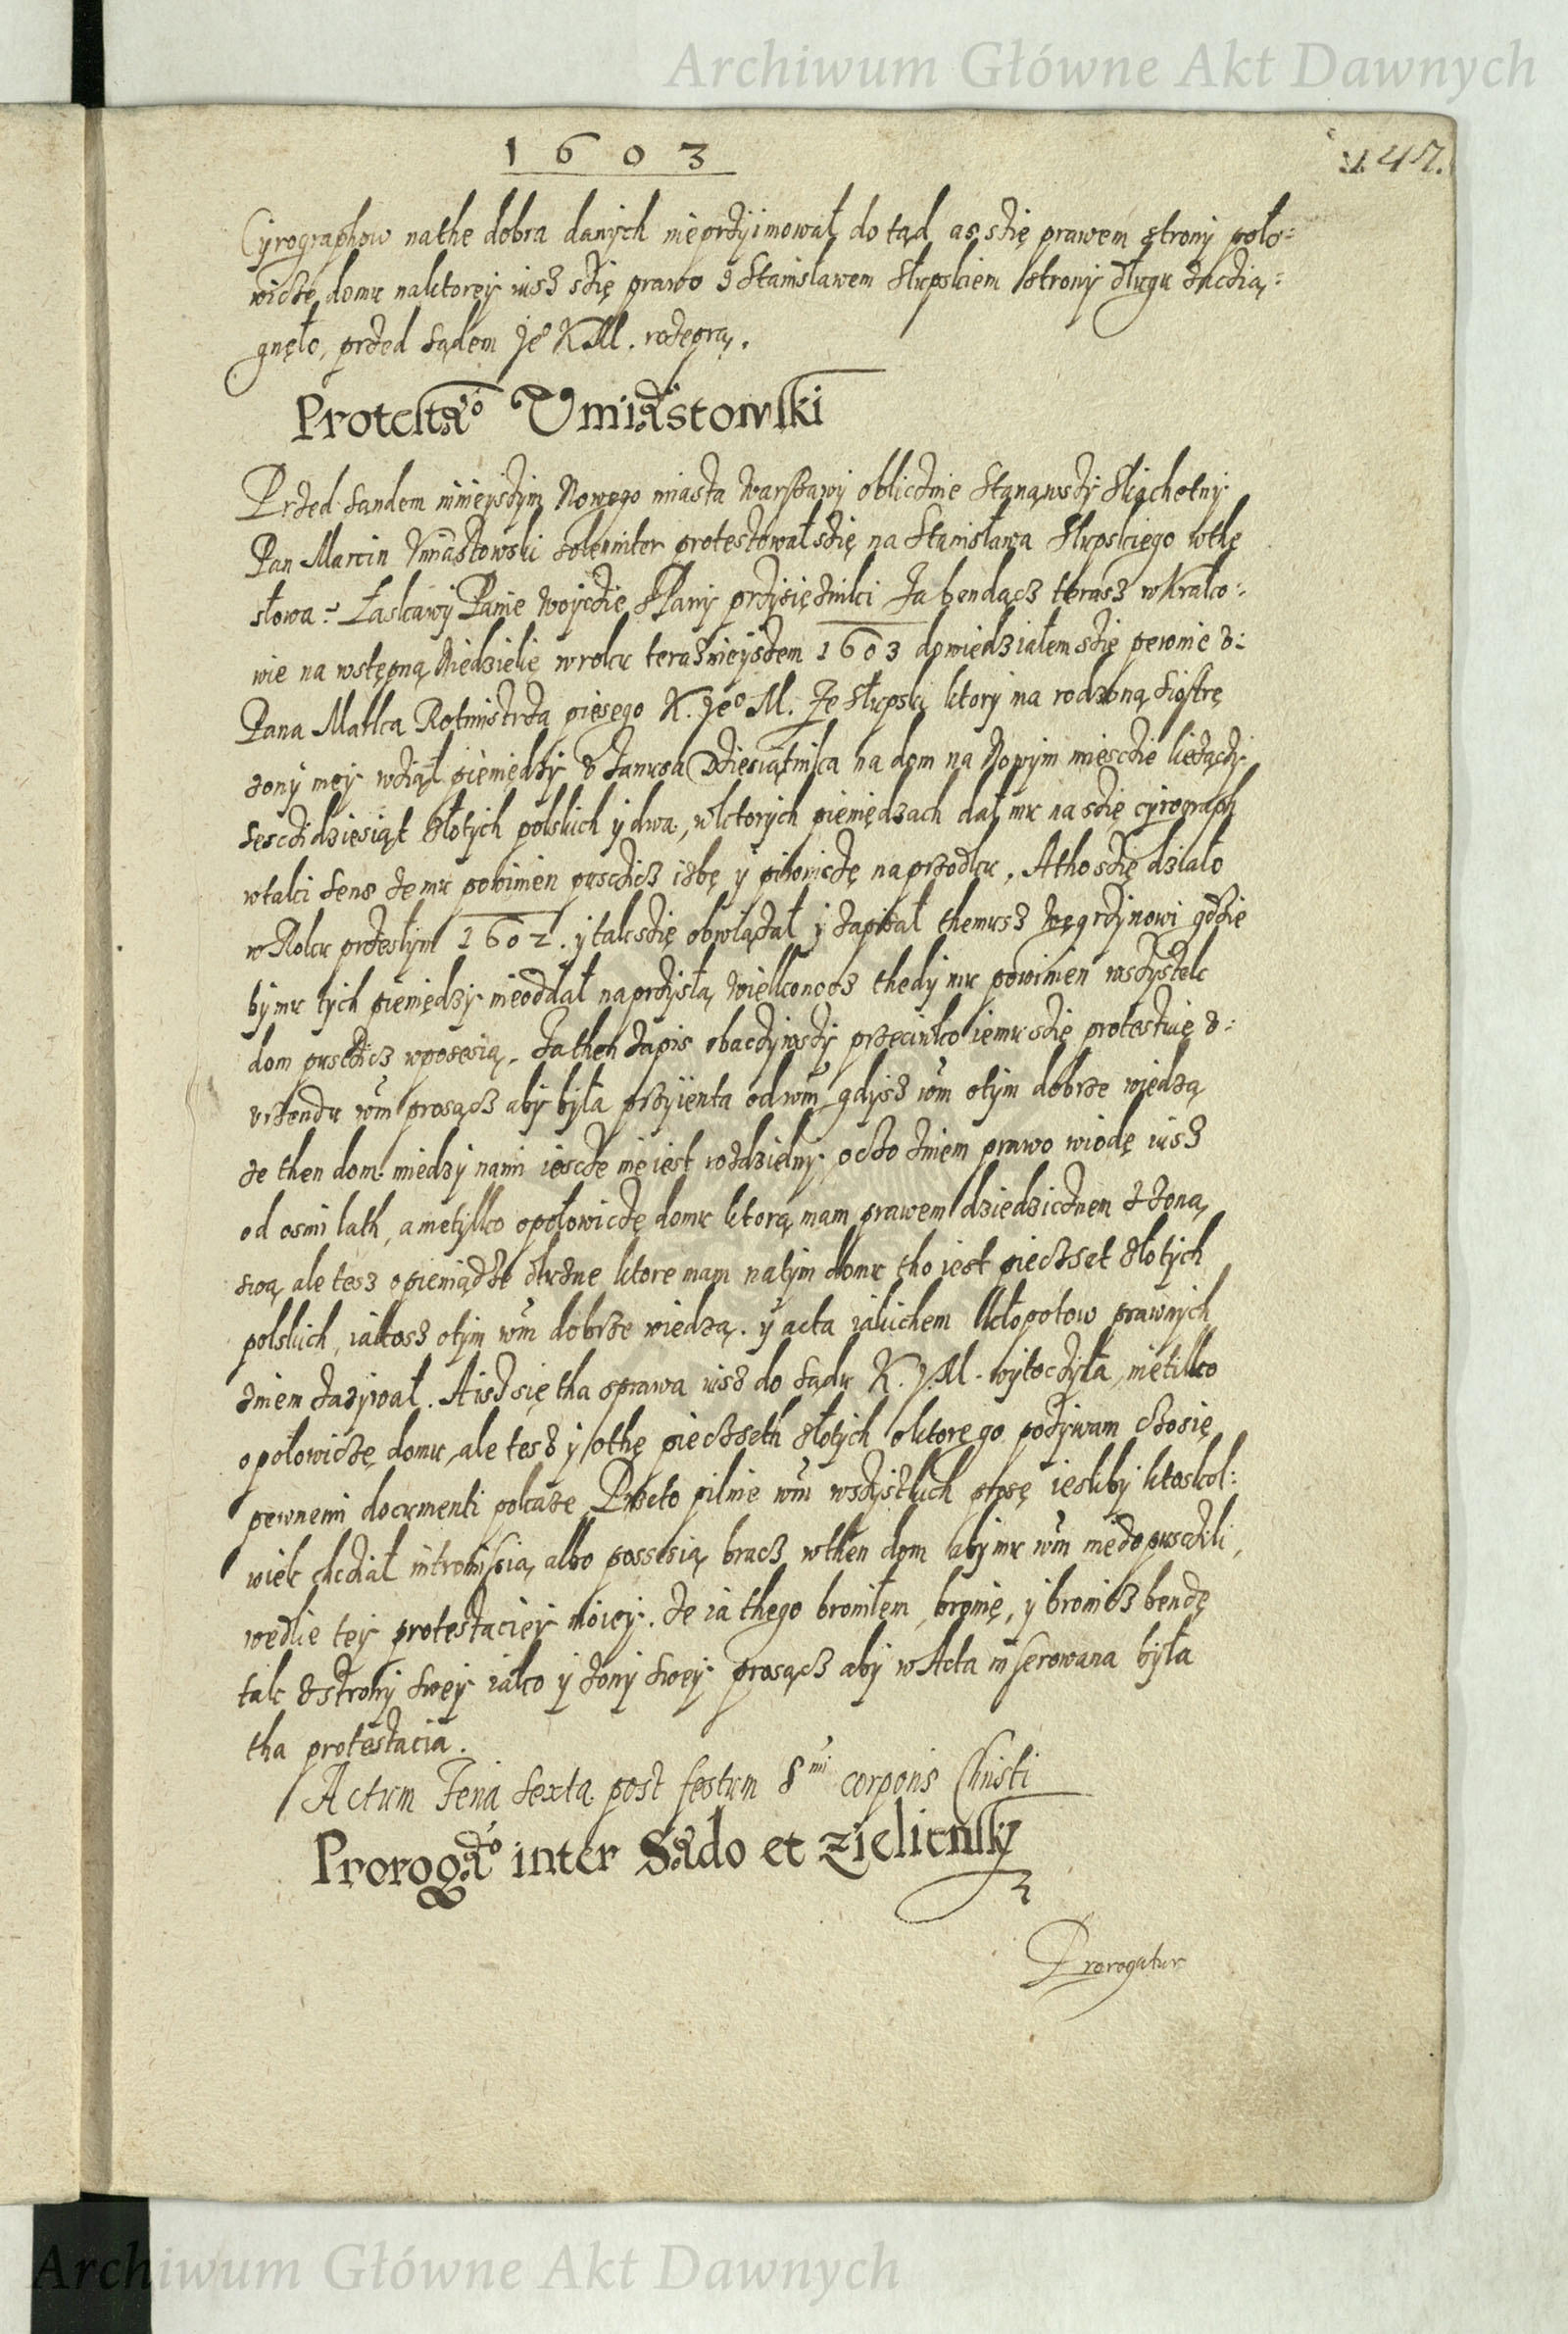 Archiwum Główne Akt Dawnych
1603
147.
Cyrographow nathe dobra danych nieprziimował do tąd as sźię prawem strony poło=
wicze domu naktorey iusz sźię prawo z Stanisławem Słupskiem strony długu zaczią=
gnęło, przed sądem Je° K M. rozepra.
Protestatio Vmiastowski
Przed sandem ninieyszym Nowego miasta Warszawy oblicznie stanąwszy Słachetny
Pan Marcin Vmiastowski solenniter protestował sźię na Stanisława Słupskiego wthę
słowa = Łaskawy Panie Woycźie y Panij przysięźnici Ja bendącz terasz wKrako=
wie na wstępną Niedzielię wroku terasznieyszem 1603 dowiedziałem sźię pewnie z=
Pana Matka Rotmistrza pieszego K. Je° M. że Słupski ktory ma rodzoną siostrę
zony mey wźiął pieniędzy v Janusa Dźiesiątnika na dom na Nowym miescźie lieżączy
sesczdziesiąt złotych polskich y dwa, wktorych pieniędzach dał mu na sźię cyrograph
wtaki sens że mu powinien pusczicz izbę y piwniczę naprzodku. Atho sźię działo
wRoku przeszłym 1602. y tak sźię obwiązał y zapisał themusz Węgrzynowi gdźie
bymu tych pieniędzy nieoddał naprzyszła Wielkonocz thedy mu powinien wszystek
dom pusczicz wposesią. Ja then zapis obaczywszy przeciwko iemu sźię protestuię z=
vrzendu wm̃ proszącz aby była przyięta od wm̃ gdysz wm̃ otym dobrze wiedzą
że then dom miedzy nami iescze nie iest rozdzielny oczo zniem prawo wiodę iusz
od osmi lath, a nietylko opołowiczę domu ktorą mam prawem dziedzicznem z zoną
swą ale tesz opieniądze dłużne ktore mam natym domu tho iest pieczset złotych
polskich, iakosz otym wm̃ dobrze wiedzą. y acta iakichem kłopotow prawnych
zniem zazywał. A isz się tha sprawa iusz do sądu K. J. M. wytoczyła, nietilko
opołowiczę domu, ale tesz y othę pieczseth złotych oktorego pozywam czo się
pewnemi documenti pokaze Przeto pilnie wm̃ wszystkich proszę iesliby ktoskol=
wiek chcźiał intromissią albo possesią bracz wthen dom aby mu wm̃ niedopusczili,
wedlie tey protestaciey moiey. że ia thego broniłem, bronię, y bronicz bendę
tak zstrony swey iako y żony swey proszącz aby wActa inserowana była
tha protestacia.
Actum Feria sexta post festum Smi corporis Christi
Prorogatio inter Sado et Zielienski
Prorogatur
Archiwum Główne Akt Dawnych